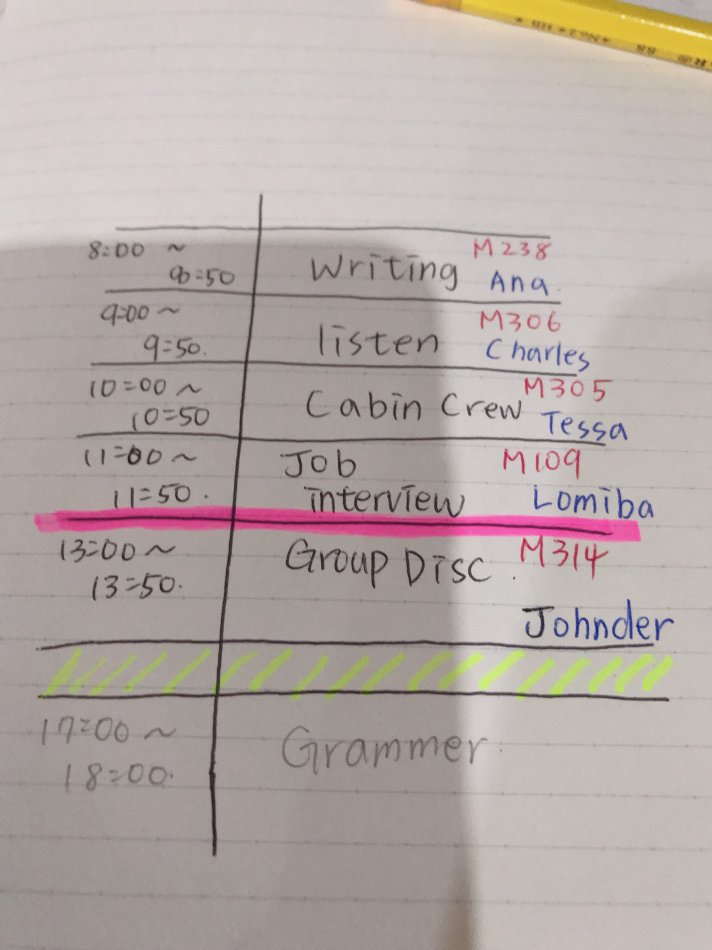 8:00 ~
8:50
Writing
M238
Ana
9:00 ~
9:50.
listen
M306
Charles
10:00 ~
10:50
Cabin Crew
M305
Tessa
11:00 ~
11:50.
Job
interview
M109
Lomiba
13:00 ~
13:50.
Group Disc.
M314
Johnder
17:00 ~
18:00.
Grammer